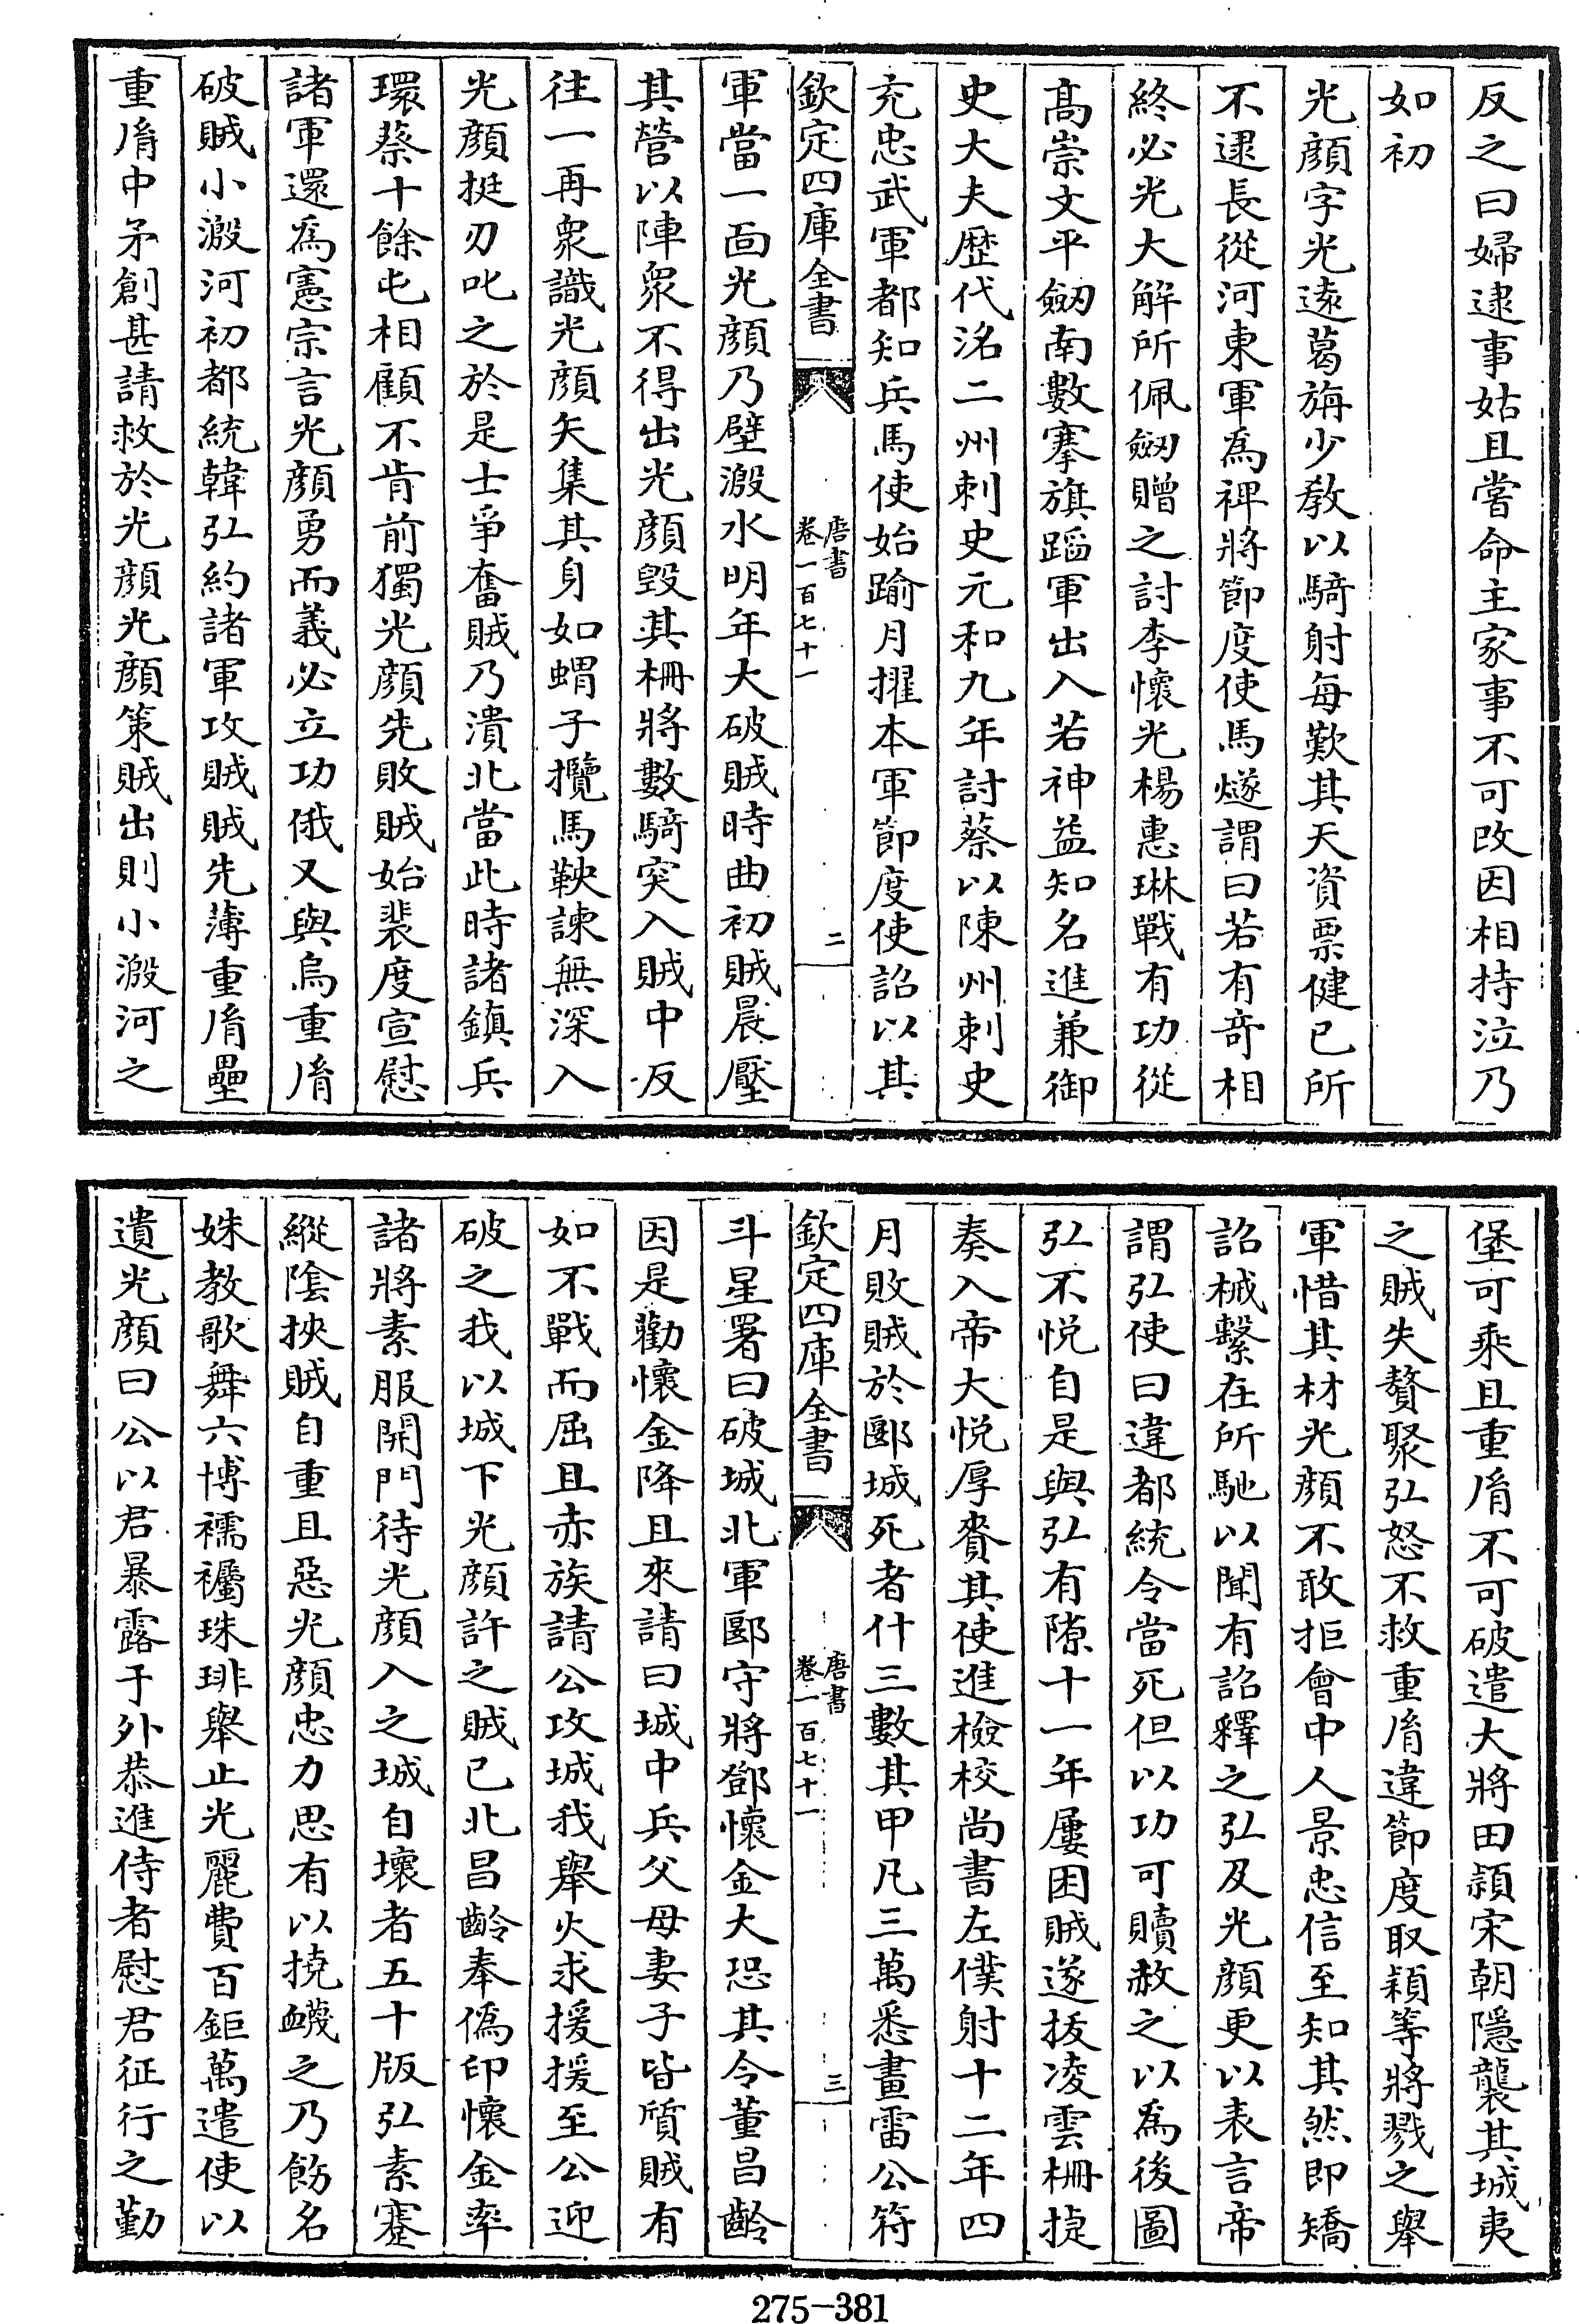 反之曰婦逮事姑且嘗命主家事不可改因相持泣乃
如初
光顔字光逺葛旃少教以騎射每歎其天資票健已所
不逮長從河東軍為裨將節度使馬燧謂曰若有竒相
終必光大解所佩劒贈之討李懷光楊惠琳戰有功從
髙崇文平劒南數搴旗蹈軍出入若神益知名進兼御
史大夫歴代洺二州刺史元和九年討蔡以陳州刺史
充忠武軍都知兵馬使始踰月擢本軍節度使詔以其
欽定四庫全書
唐書
卷一百七十一
二
軍當一面光顔乃壁溵水明年大破賊時曲初賊晨壓
其營以陣衆不得出光顔毁其柵將數騎突入賊中反
往一再衆識光顔矢集其身如蝟子攬馬鞅諫無深入
光顔挺刃叱之於是士爭奮賊乃潰北當此時諸鎮兵
環蔡十餘屯相顧不肯前獨光顔先敗賊始裴度宣慰
諸軍還為憲宗言光顔勇而義必立功俄又與烏重𦙍
破賊小溵河初都統韓弘約諸軍攻賊賊先薄重𦙍壘
重𦙍中矛創甚請救於光顔光顔策賊出則小溵河之
堡可乘且重𦙍不可破遣大將田潁宋朝隱襲其城夷
之賊失贅聚弘怒不救重𦙍違節度取穎等將戮之舉
軍惜其材光顔不敢拒會中人景忠信至知其然即矯
詔械繫在所馳以聞有詔釋之弘及光顔更以表言帝
謂弘使曰違都統令當死但以功可贖赦之以為後圖
弘不悦自是與弘有隙十一年屢困賊遂拔凌雲柵㨗
奏入帝大悦厚賚其使進檢校尚書左僕射十二年四
月敗賊於郾城死者什三數其甲凡三萬悉畫雷公符
欽定四庫全書
唐書
卷一百七十一
三
斗星署曰破城北軍郾守將鄧懷金大恐其令董昌齡
因是勸懷金降且來請曰城中兵父母妻子皆質賊有
如不戰而屈且赤族請公攻城我舉火求援援至公迎
破之我以城下光顔許之賊已北昌齡奉偽印懷金率
諸將素服開門待光顔入之城自壞者五十版弘素蹇
縱隂挾賊自重且惡光顔忠力思有以撓衊之乃飭名
姝教歌舞六博襦襡珠琲舉止光麗費百鉅萬遣使以
遺光顔曰公以君暴露于外恭進侍者慰君征行之勤
275-381